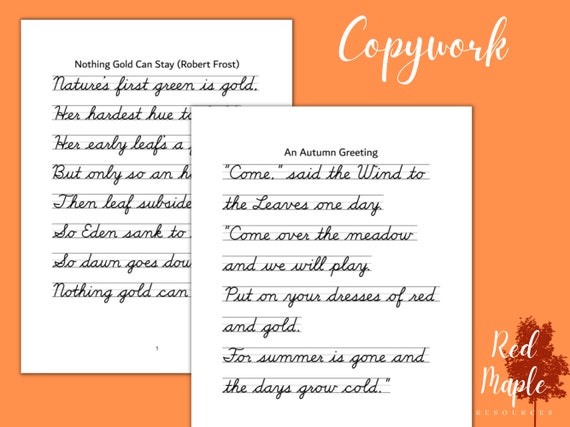 Copywork
Nothing Gold Can Stay (Robert Frost)
Nature's first green is gold.
Her hardest hue to
Her early leaf's a
But only so an
Then leaf subside
So Eden sank to
So dawn goes
Nothing gold can
1
An Autumn Greeting
"Come," said the Wind to
the Leaves one day.
"Come over the meadow
and we will play.
Put on your dresses of red
and gold.
For summer is gone and
the days grow cold."
Red
Maple
RESOURCES